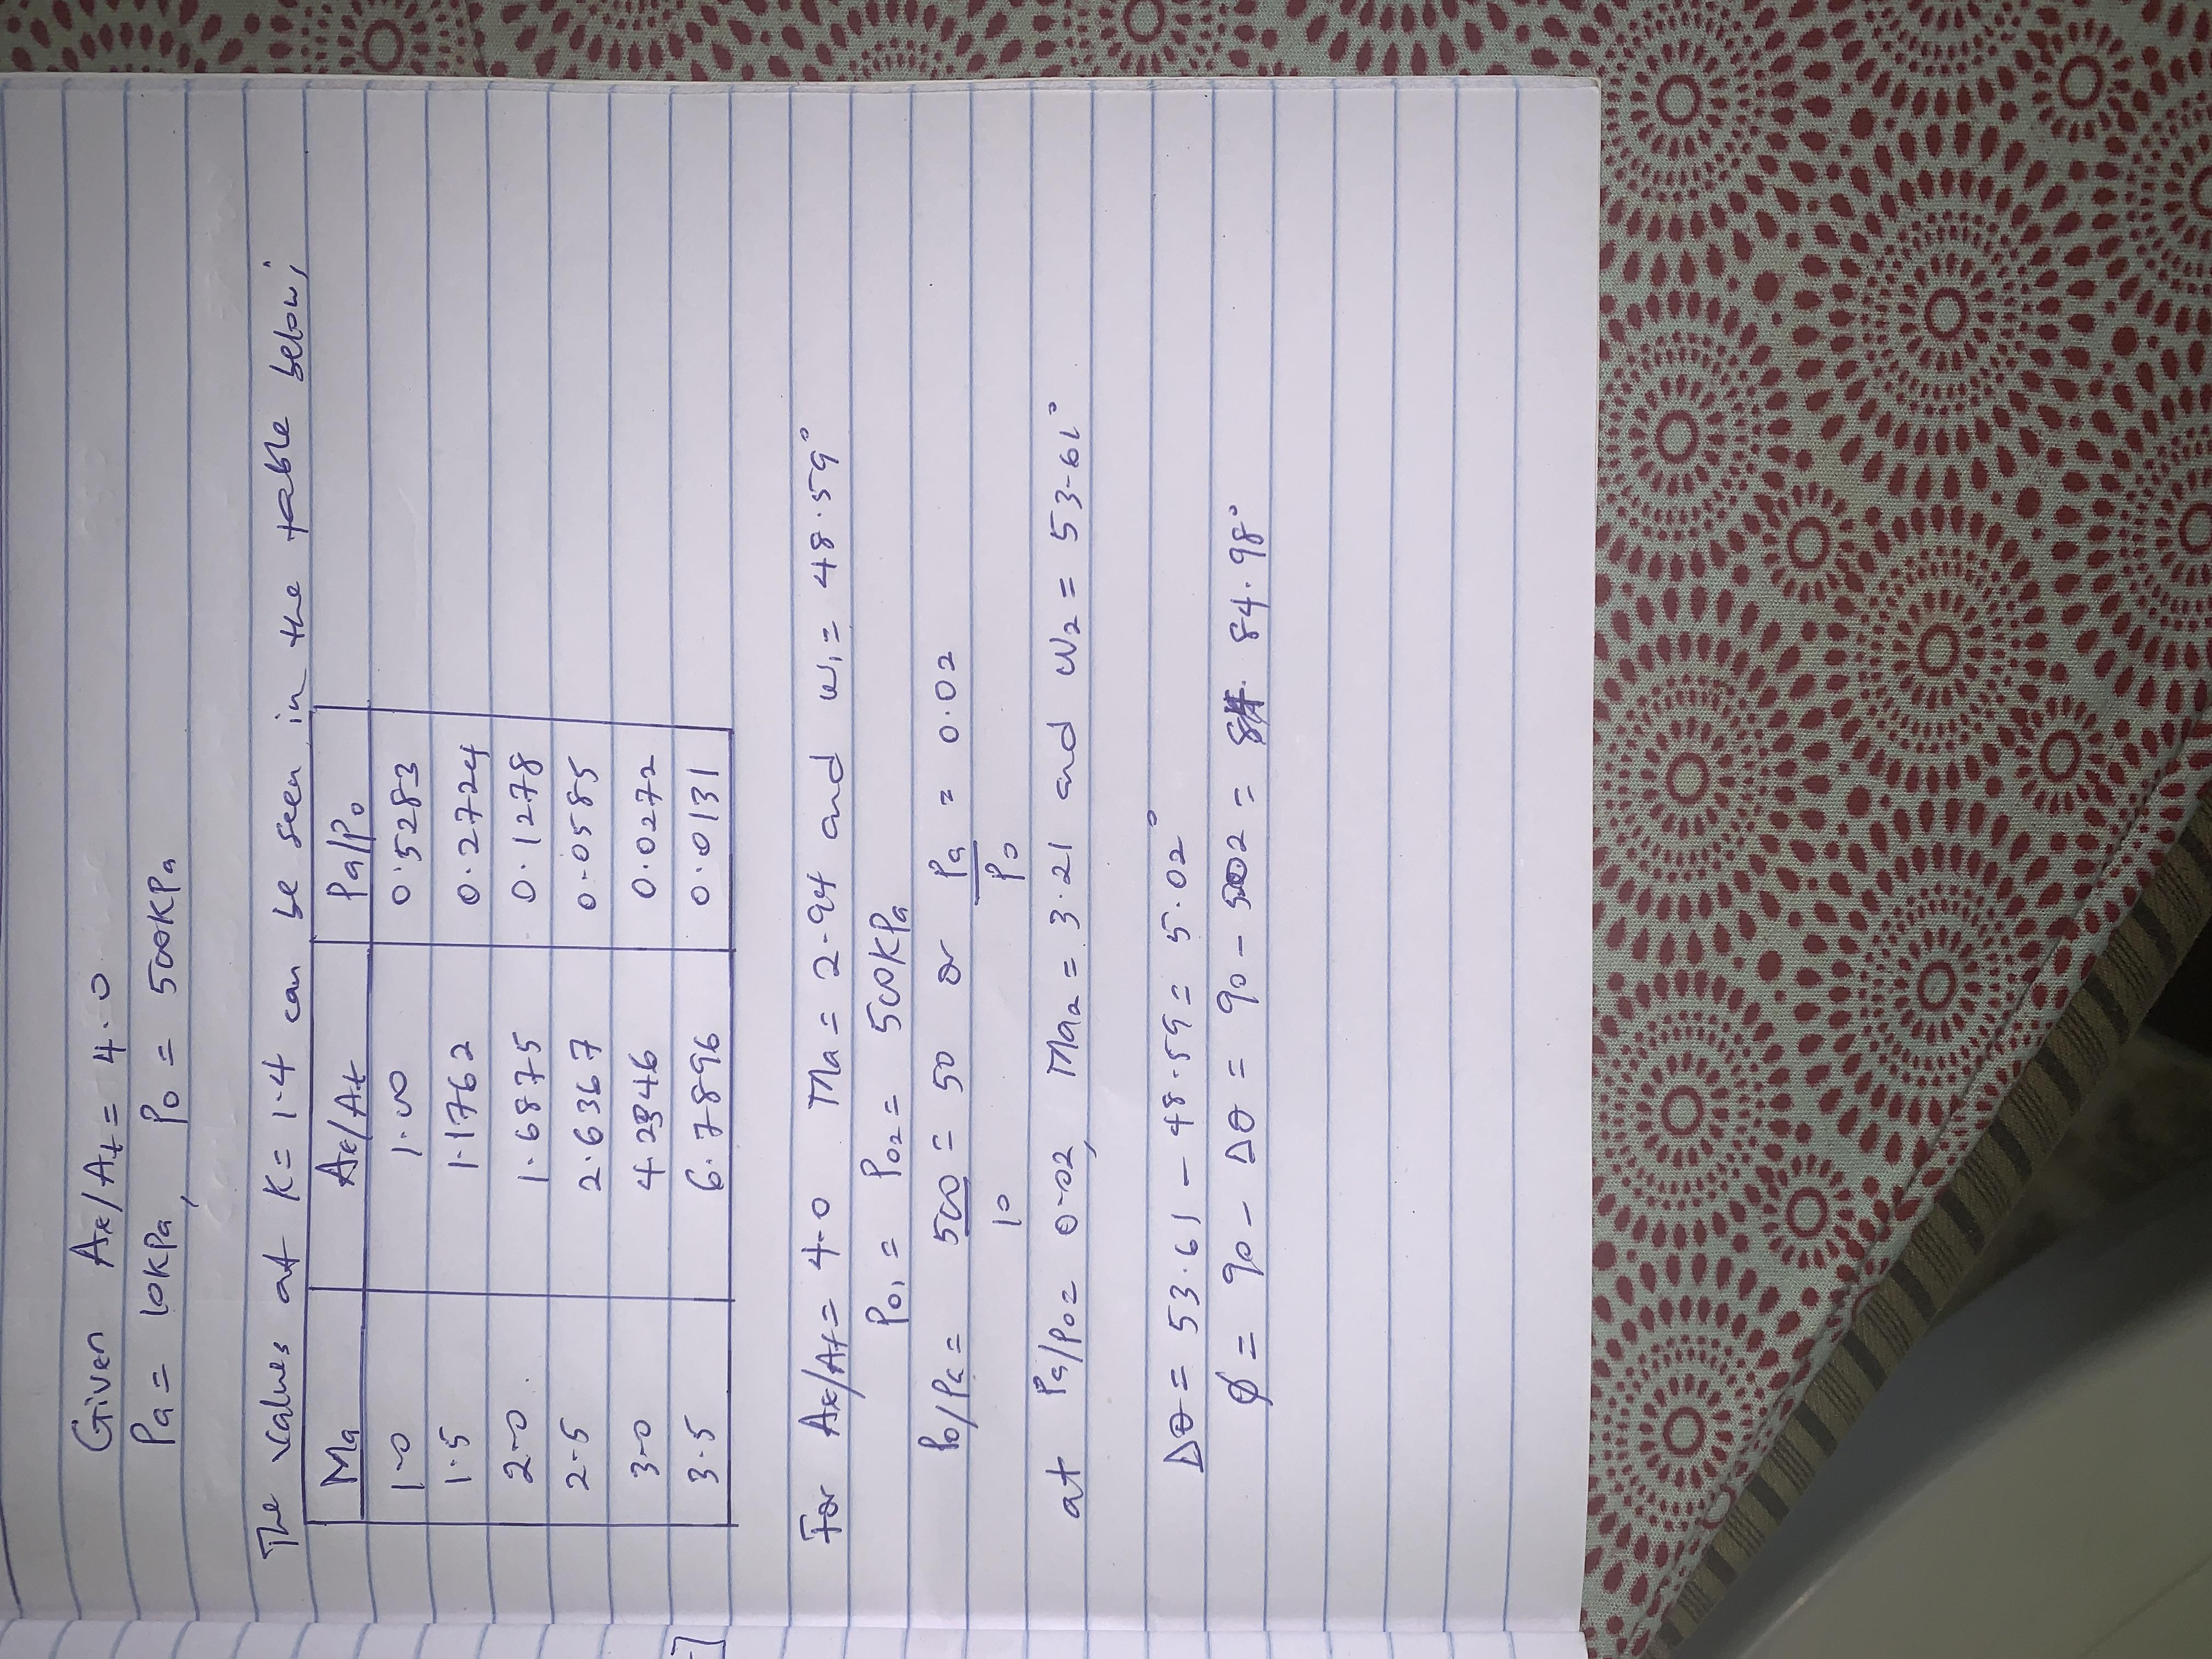 Given Ae/At = 4.0
Pa = 10KPa, Po = 500KPa
The values at K = 1.4 can be seen in the table below;
Ma Ae/At Pa/Po
1.0 1.00 0.5283
1.5 1.1762 0.2724
2.0 1.6875 0.1278
2.5 2.6367 0.0585
3.0 4.2346 0.0272
3.5 6.7896 0.0131
For Ae/At = 4.0 Ma = 2.94 and w1 = 48.59°
Po1 = Po2 = 500KPa
Po/Pa = 500/10 = 50 or Pa/Po = 0.02
at Pa/Po = 0.02, Ma2 = 3.21 and w2 = 53.61°
Δθ = 53.61 - 48.59 = 5.02°
Ø = 90 - Δθ = 90 - 502 = 84.98°